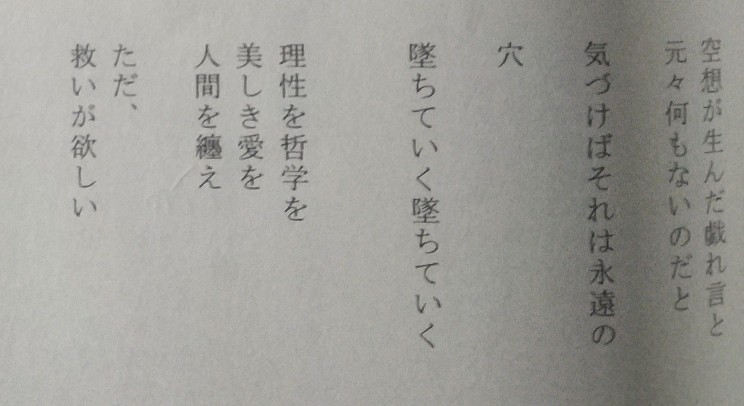 空想が生んだ戯れ言と
元々何もないのだと
気づけばそれは永遠の
穴
墜ちていく墜ちていく
理性を哲学を
美しき愛を
人間を纏え
ただ、
救いが欲しい